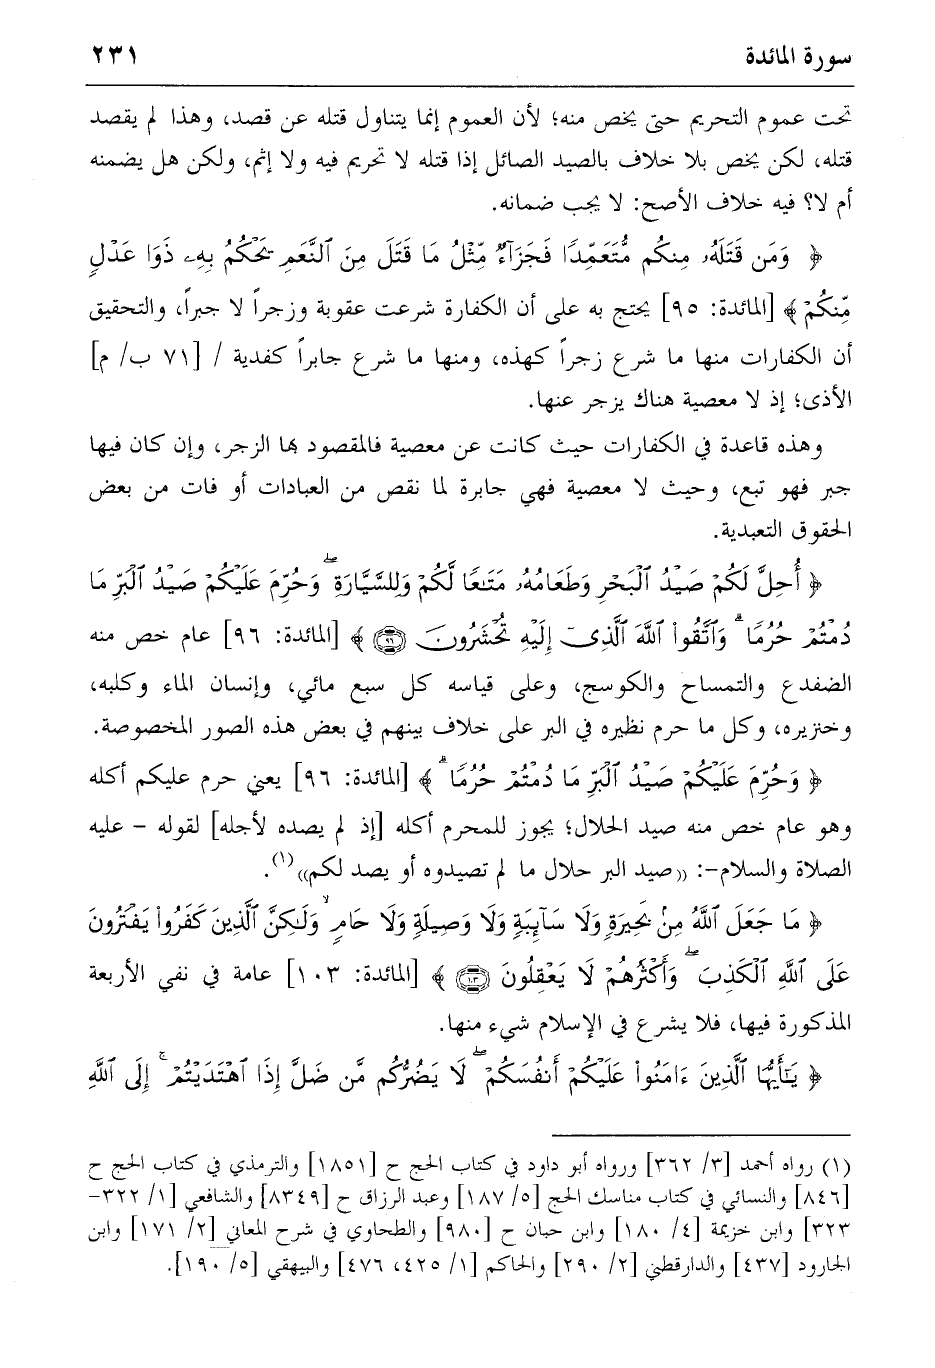 سورة المائدة ٢٣١
تحت عموم التحريم حتى يخص منه؛ لأن العموم إنما يتناول قتله عن قصد، وهذا لم يقصد
قتله، لكن يخص بلا خلاف بالصيد الصائل إذا قتله لا تحريم فيه ولا إثم، ولكن هل يضمنه
أم لا؟ فيه خلاف الأصح: لا يجب ضمانه.
﴿ وَمَن قَتَلَهُۥ مِنكُم مُّتَعَمِّدًا فَجَزَآءٌ مِّثْلُ مَا قَتَلَ مِنَ ٱلنَّعَمِ يَحْكُمُ بِهِۦ ذَوَا عَدْلٍ
مِّنكُمْ ﴾ [المائدة: ٩٥] يحتج به على أن الكفارة شرعت عقوبة وزجراً لا جبراً، والتحقيق
أن الكفارات منها ما شرع زجراً كهذه، ومنها ما شرع جابراً كفدية / [٧١ ب/ م]
الأذى؛ إذ لا معصية هناك يزجر عنها.
وهذه قاعدة في الكفارات حيث كانت عن معصية فالمقصود بها الزجر، وإن كان فيها
جبر فهو تبع، وحيث لا معصية فهي جابرة لما نقص من العبادات أو فات من بعض
الحقوق التعبدية.
﴿ أُحِلَّ لَكُمْ صَيْدُ ٱلْبَحْرِ وَطَعَامُهُۥ مَتَـٰعًا لَّكُمْ وَلِلسَّيَّارَةِ ۖ وَحُرِّمَ عَلَيْكُمْ صَيْدُ ٱلْبَرِّ مَا
دُمْتُمْ حُرُمًا ۗ وَٱتَّقُوا۟ ٱللَّهَ ٱلَّذِىٓ إِلَيْهِ تُحْشَرُونَ ﴿٩٦﴾ ﴾ [المائدة: ٩٦] عام خص منه
الضفدع والتمساح والكوسج، وعلى قياسه كل سبع مائي، وإنسان الماء وكلبه،
وخنزيره، وكل ما حرم نظيره في البر على خلاف بينهم في بعض هذه الصور المخصوصة.
﴿ وَحُرِّمَ عَلَيْكُمْ صَيْدُ ٱلْبَرِّ مَا دُمْتُمْ حُرُمًا ۗ ﴾ [المائدة: ٩٦] يعني حرم عليكم أكله
وهو عام خص منه صيد الحلال؛ يجوز للمحرم أكله [إذ لم يصده لأجله] لقوله – عليه
الصلاة والسلام–: ((صيد البر حلال ما لم تصيدوه أو يصد لكم))(١).
﴿ مَا جَعَلَ ٱللَّهُ مِنۢ بَحِيرَةٍ وَلَا سَآئِبَةٍ وَلَا وَصِيلَةٍ وَلَا حَامٍ ۙ وَلَـٰكِنَّ ٱلَّذِينَ كَفَرُوا۟ يَفْتَرُونَ
عَلَى ٱللَّهِ ٱلْكَذِبَ ۖ وَأَكْثَرُهُمْ لَا يَعْقِلُونَ ﴿١٠٣﴾ ﴾ [المائدة: ١٠٣] عامة في نفي الأربعة
المذكورة فيها، فلا يشرع في الإسلام شيء منها.
﴿ يَـٰٓأَيُّهَا ٱلَّذِينَ ءَامَنُوا۟ عَلَيْكُمْ أَنفُسَكُمْ ۖ لَا يَضُرُّكُم مَّن ضَلَّ إِذَا ٱهْتَدَيْتُمْ ۚ إِلَى ٱللَّهِ
(١) رواه أحمد [٣/ ٣٦٢] ورواه أبو داود في كتاب الحج ح [١٨٥١] والترمذي في كتاب الحج ح
[٨٤٦] والنسائي في كتاب مناسك الحج [٥/ ١٨٧] وعبد الرزاق ح [٨٣٤٩] والشافعي [١/ ٣٢٢–
٣٢٣] وابن خزيمة [٤/ ١٨٠] وابن حبان ح [٩٨٠] والطحاوي في شرح المعاني [٢/ ١٧١] وابن
الجارود [٤٣٧] والدارقطني [٢/ ٢٩٠] والحاكم [١/ ٤٢٥، ٤٧٦] والبيهقي [٥/ ١٩٠].